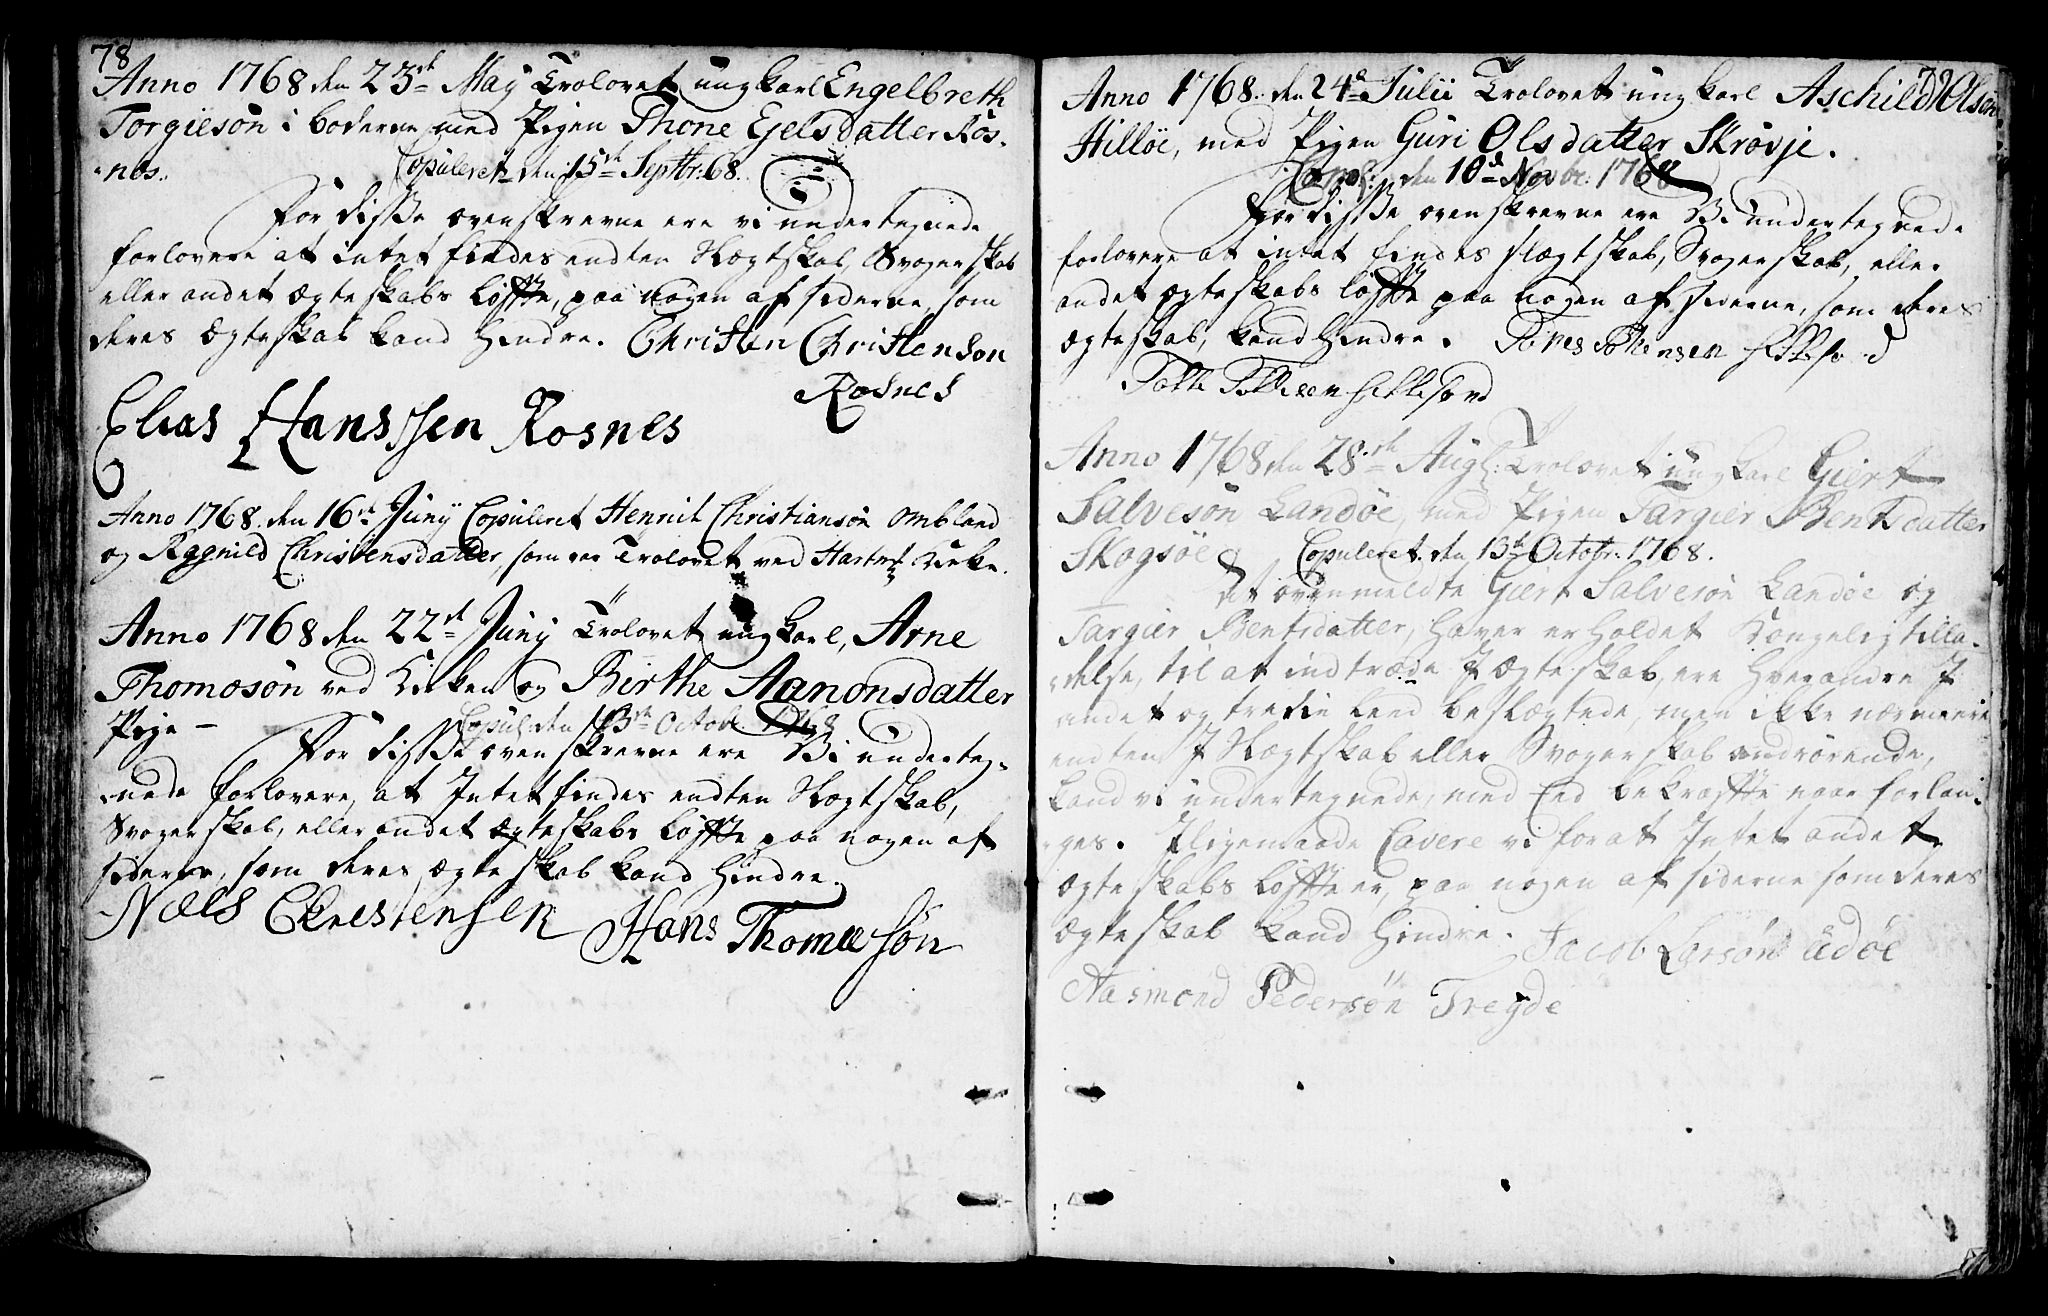 78
Anno 1768 den 23de May Trolovet ungkarl Engelbreth
Torgiesøn i boderne med Pigen Thone Eyelsdatter Ros-
-nes. Copuleret den 15de Septbr: 68.
For disse ovenskrevne ere vi undertegnede
forlovere at intet findes endten Slægtskab, Svogerskab
eller andet ægteskabs løffte, paa nogen af siderne, som
deres Ægteskab kand hindre. Christen Christenson
Rosnes
Elias Hanssen Rosnes
Anno 1768. den 16de Juny Copuleret Henrik Christiansøn ombland
og Ragnild Christensdatter, som var Trolovet ved Kirke.
Anno 1768 den 22de Juny Trolovet ungkarl, Arne
Thomosøn ved Kirken og Birthe Aanonsdatter
Pige - Copul: den 13de Octobr. 1768
For disse ovenskrevne ere Vi underteg-
-nede forlovere, at Intet findes endten Slægtskab,
Svogerskab, eller andet ægteskabs løffte paa nogen af
siderne, som deres ægteskab kand hindre.
Niels Chrestensen Hans Thomæsøn
79
Anno 1768. den 24de Julii Trolovet ungkarl Aschild Olsøn
Hilløe, med Pigen Guri Olsdatter Skrøvje.
Copul: den 10de Novbr. 1768
For disse ovenskrevne ere Vi undertegnede
forlovere at intet findes slægtskab, Svogerskab, eller
andet ægteskabs løffte paa nogen af siderne, som deres
ægteskab, kand hindre.
Anno 1768 den 28de Aug: Trolovet ungkarl Giert
Salvesøn Landøe med Pigen Targier Bentsdatter
Skogsøe Copuleret den 13de Octobr. 1768.
At ovenmeldte Giert Salvesøn Landøe og
Targier Bentsdatter, haver erholdet Kongelig tilla-
-delse, til at indtræde I Ægteskab, ere hverandre I
andet og tredie Leed beslægtede, men ikke nærmere
endten I Slægtskab eller Svogerskab andrørende,
kand vi undertegnede, med Eed bekræffte naar forlan-
-ges. Iligemaade Cavere vi for at Intet andet
ægteskabs løffte er, paa nogen af siderne som deres
Ægteskab kand hindre. Jacob Larsøn Udøe
Aasmond Pedersøn Tregde